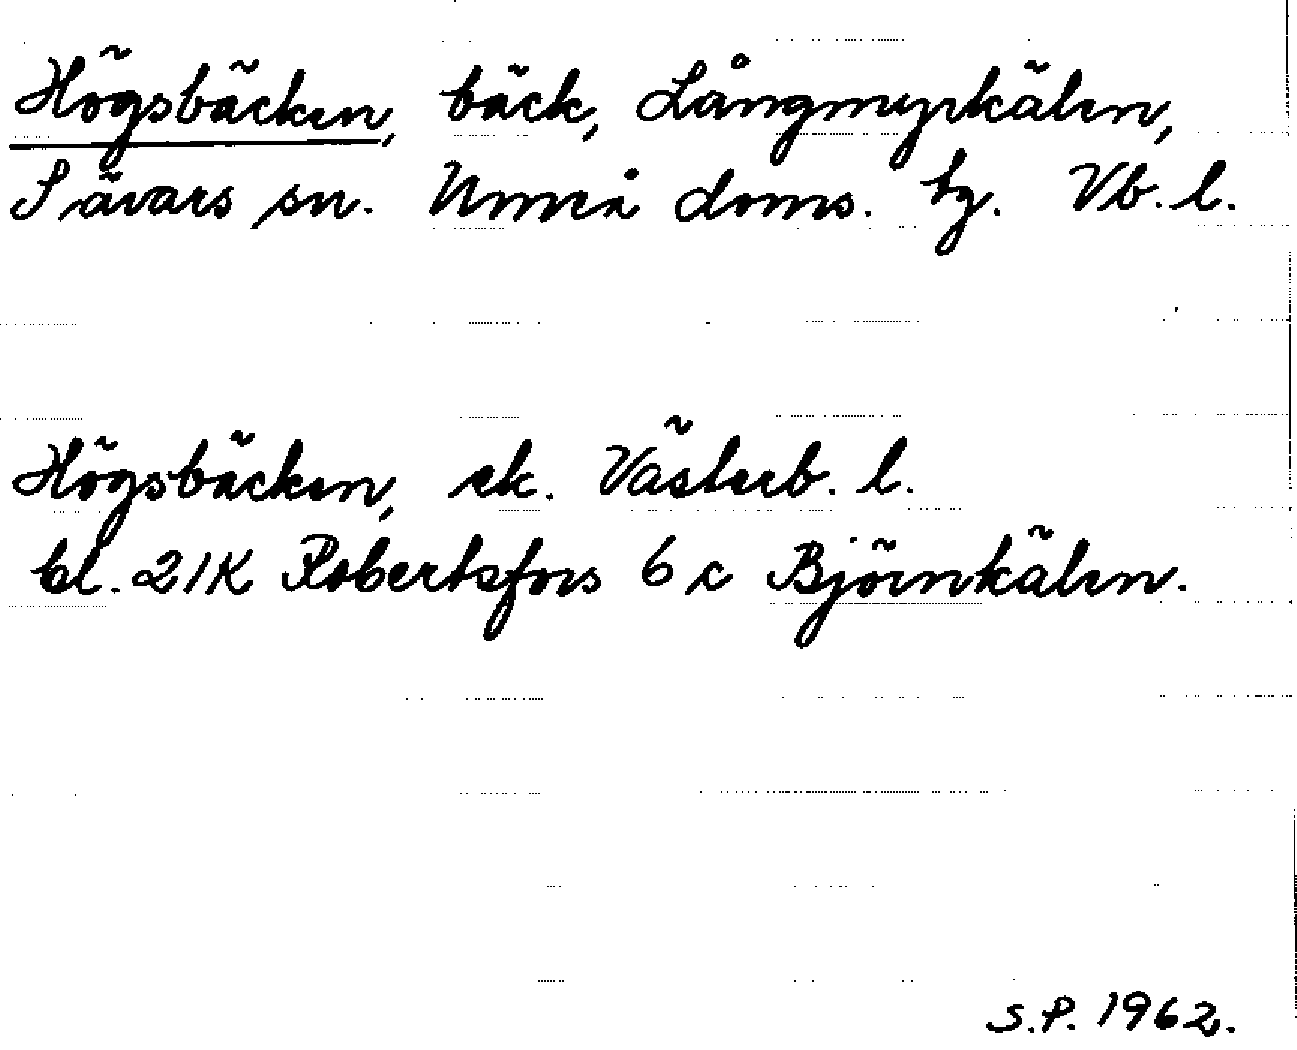 Högsbäcken, bäck, Långmyrkälen,
Sävars sn. Umeå doms. tg. Vb. l.
Högsbäcken, ek. Västerb. l.
bl. 21K Robertsfors 6 c Björnkälen.
S.P. 1962.